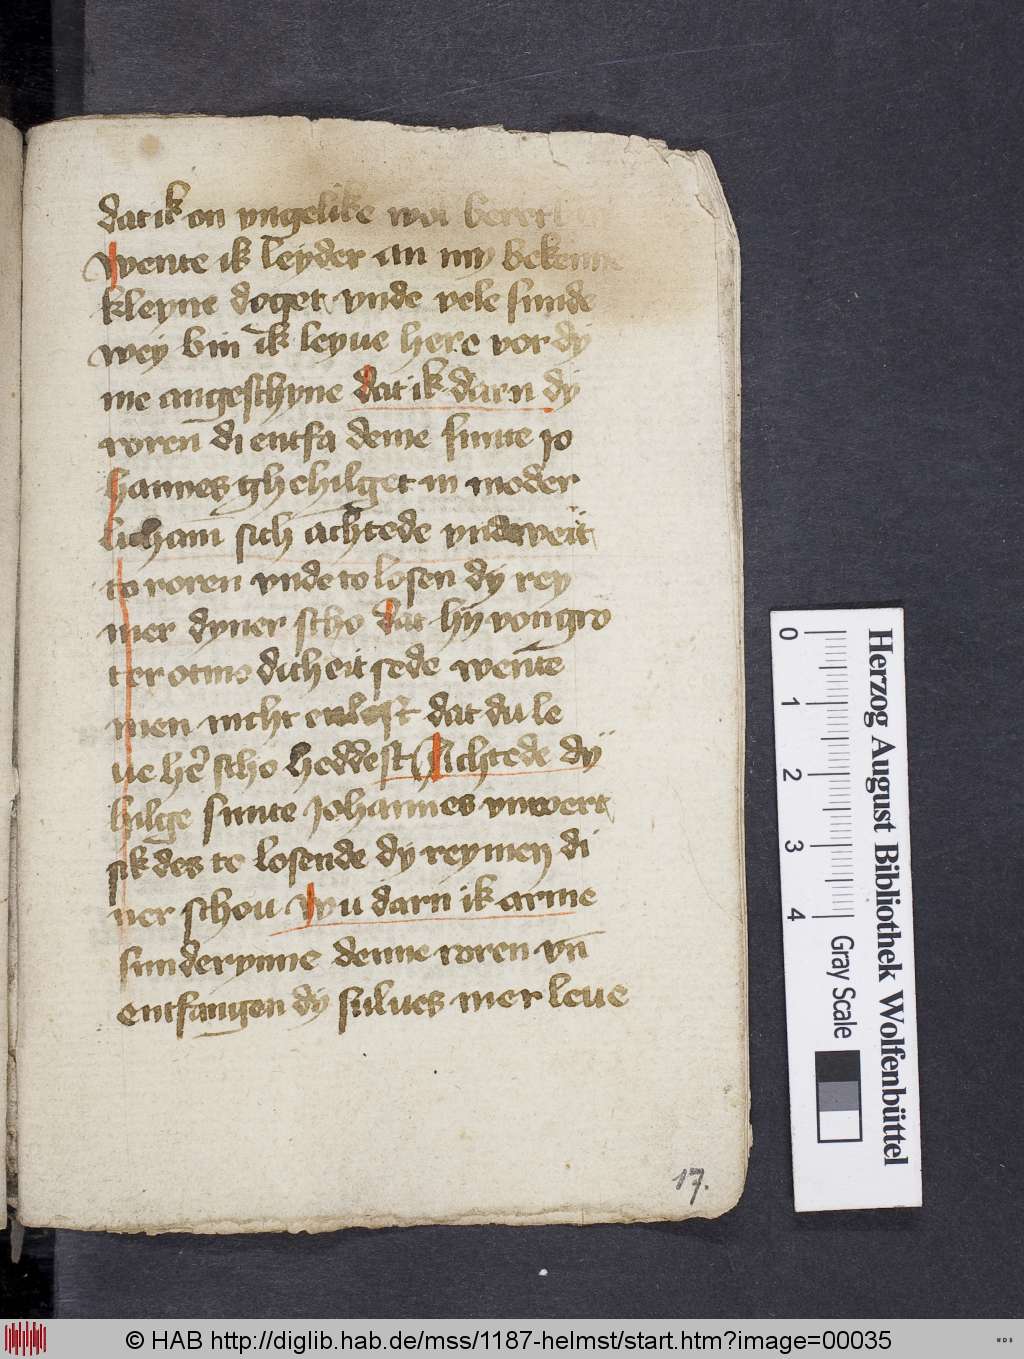 dat ik on vngelike wol
wente ik leyder an my bekenne
kleyne doget vnde vele sunde
wey bin ik leyue here vor dy
me angesthyne dat ik darn dy
roren di entfa deme sunte Jo
hannes ghehilget in moder
licham sich achtede vnde
to roren vnde to losen dy rey
mer dyner scho dat hy von gro
ter otmodicheit sede wente
men nicht dat du le
ue he scho heddest Achtede dy
hilge sunte Johannes vnwert
sik des te losende dy reymen di
ner schou wu darn ik arme
sunderynne denne roren vn̄
entfangen dy sulues mer leue
17.
Herzog August Bibliothek Wolfenbüttel
0 1 2 3 4
Gray Scale
© HAB http://diglib.hab.de/mss/1187-helmst/start.htm?image=00035
WDB